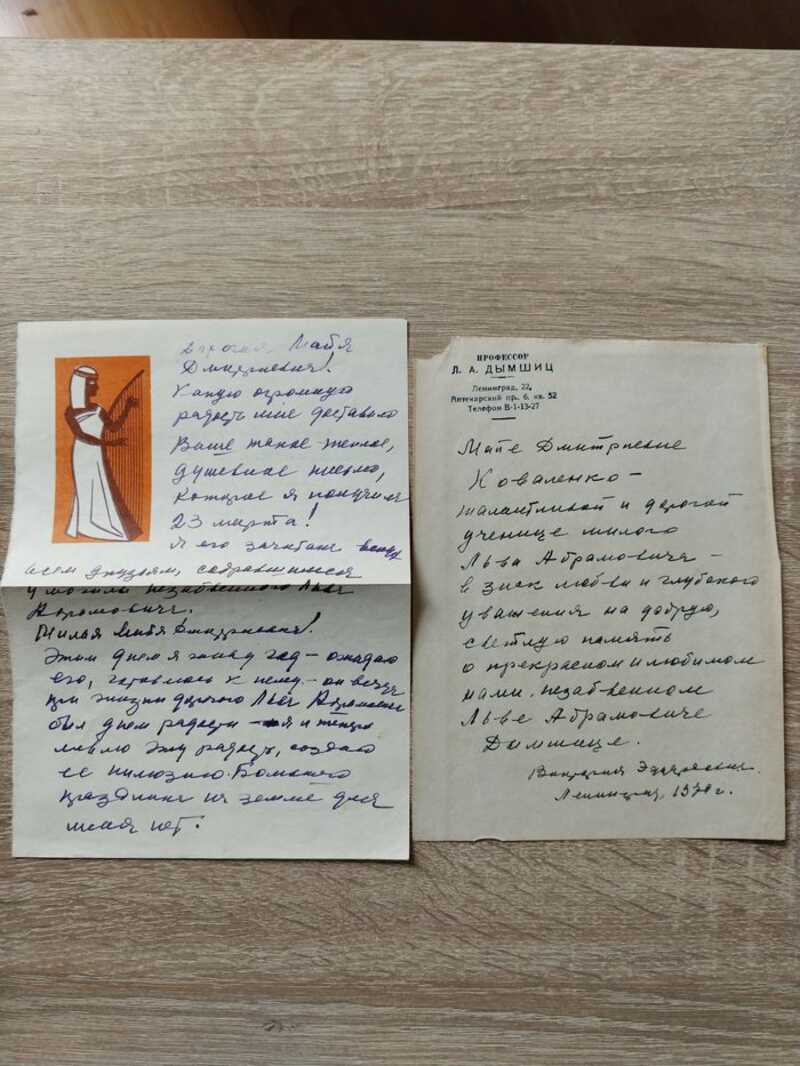 дорогая Майя
Дмитриевна!
Какую огромную
радость мне доставило
Ваше такое теплое,
душевное письмо,
которое я получила
23 марта!
Я его зачитала вслух
всем друзьям, собравшимся
у могилы незабвенного Льва
Абрамовича.
Милая Майя Дмитриевна!
Этим днем я живу год – ожидаю
его, готовлюсь к нему – он всегда
при жизни дорогого Льва Абрамовича
был днем радости – я и теперь
ловлю эту радость, создаю
ее иллюзию. Большого
праздника на земле для
меня нет.
ПРОФЕССОР
Л. А. ДЫМШИЦ
Ленинград, 22,
Аптекарский пр. 6, кв. 52
Телефон В-1-13-27
Майе Дмитриевне
Коваленко –
талантливой и дорогой
ученице милого
Льва Абрамовича –
в знак любви и глубокого
уважения на добрую,
светлую память
о прекрасном и любимом
нами, незабвенном
Льве Абрамовиче
Дымшице.
Ленинград, г.